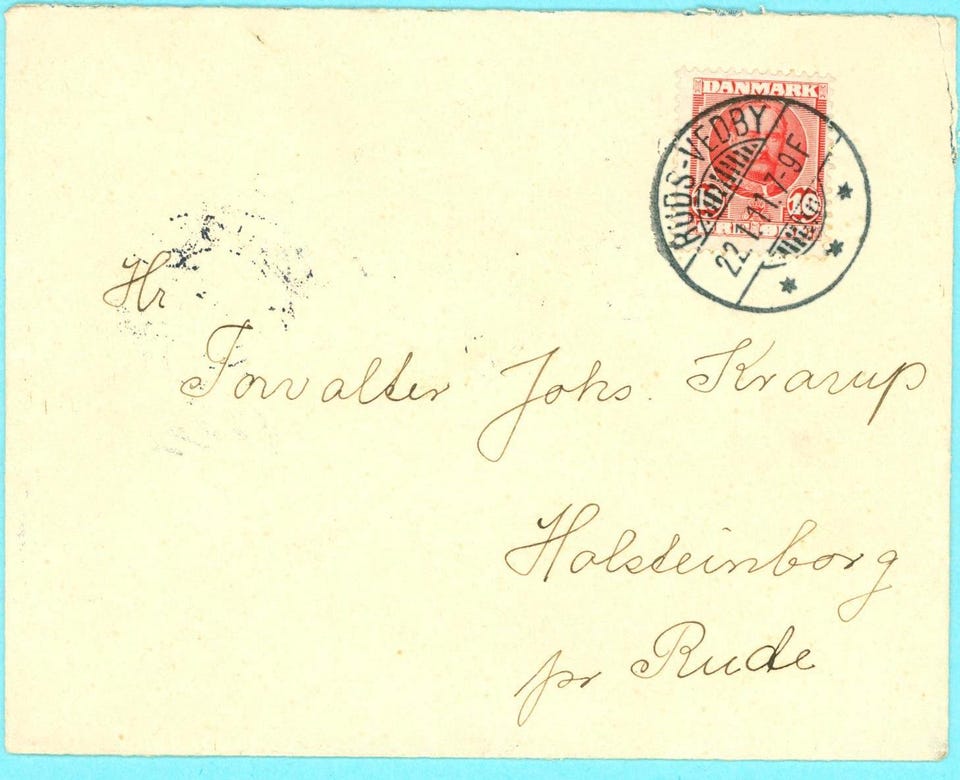 DANMARK
RUDS-VEDBY
22.1.11.7-9F
10 10
Hr
Forvalter Johs. Krarup
Holsteinborg
pr Rude